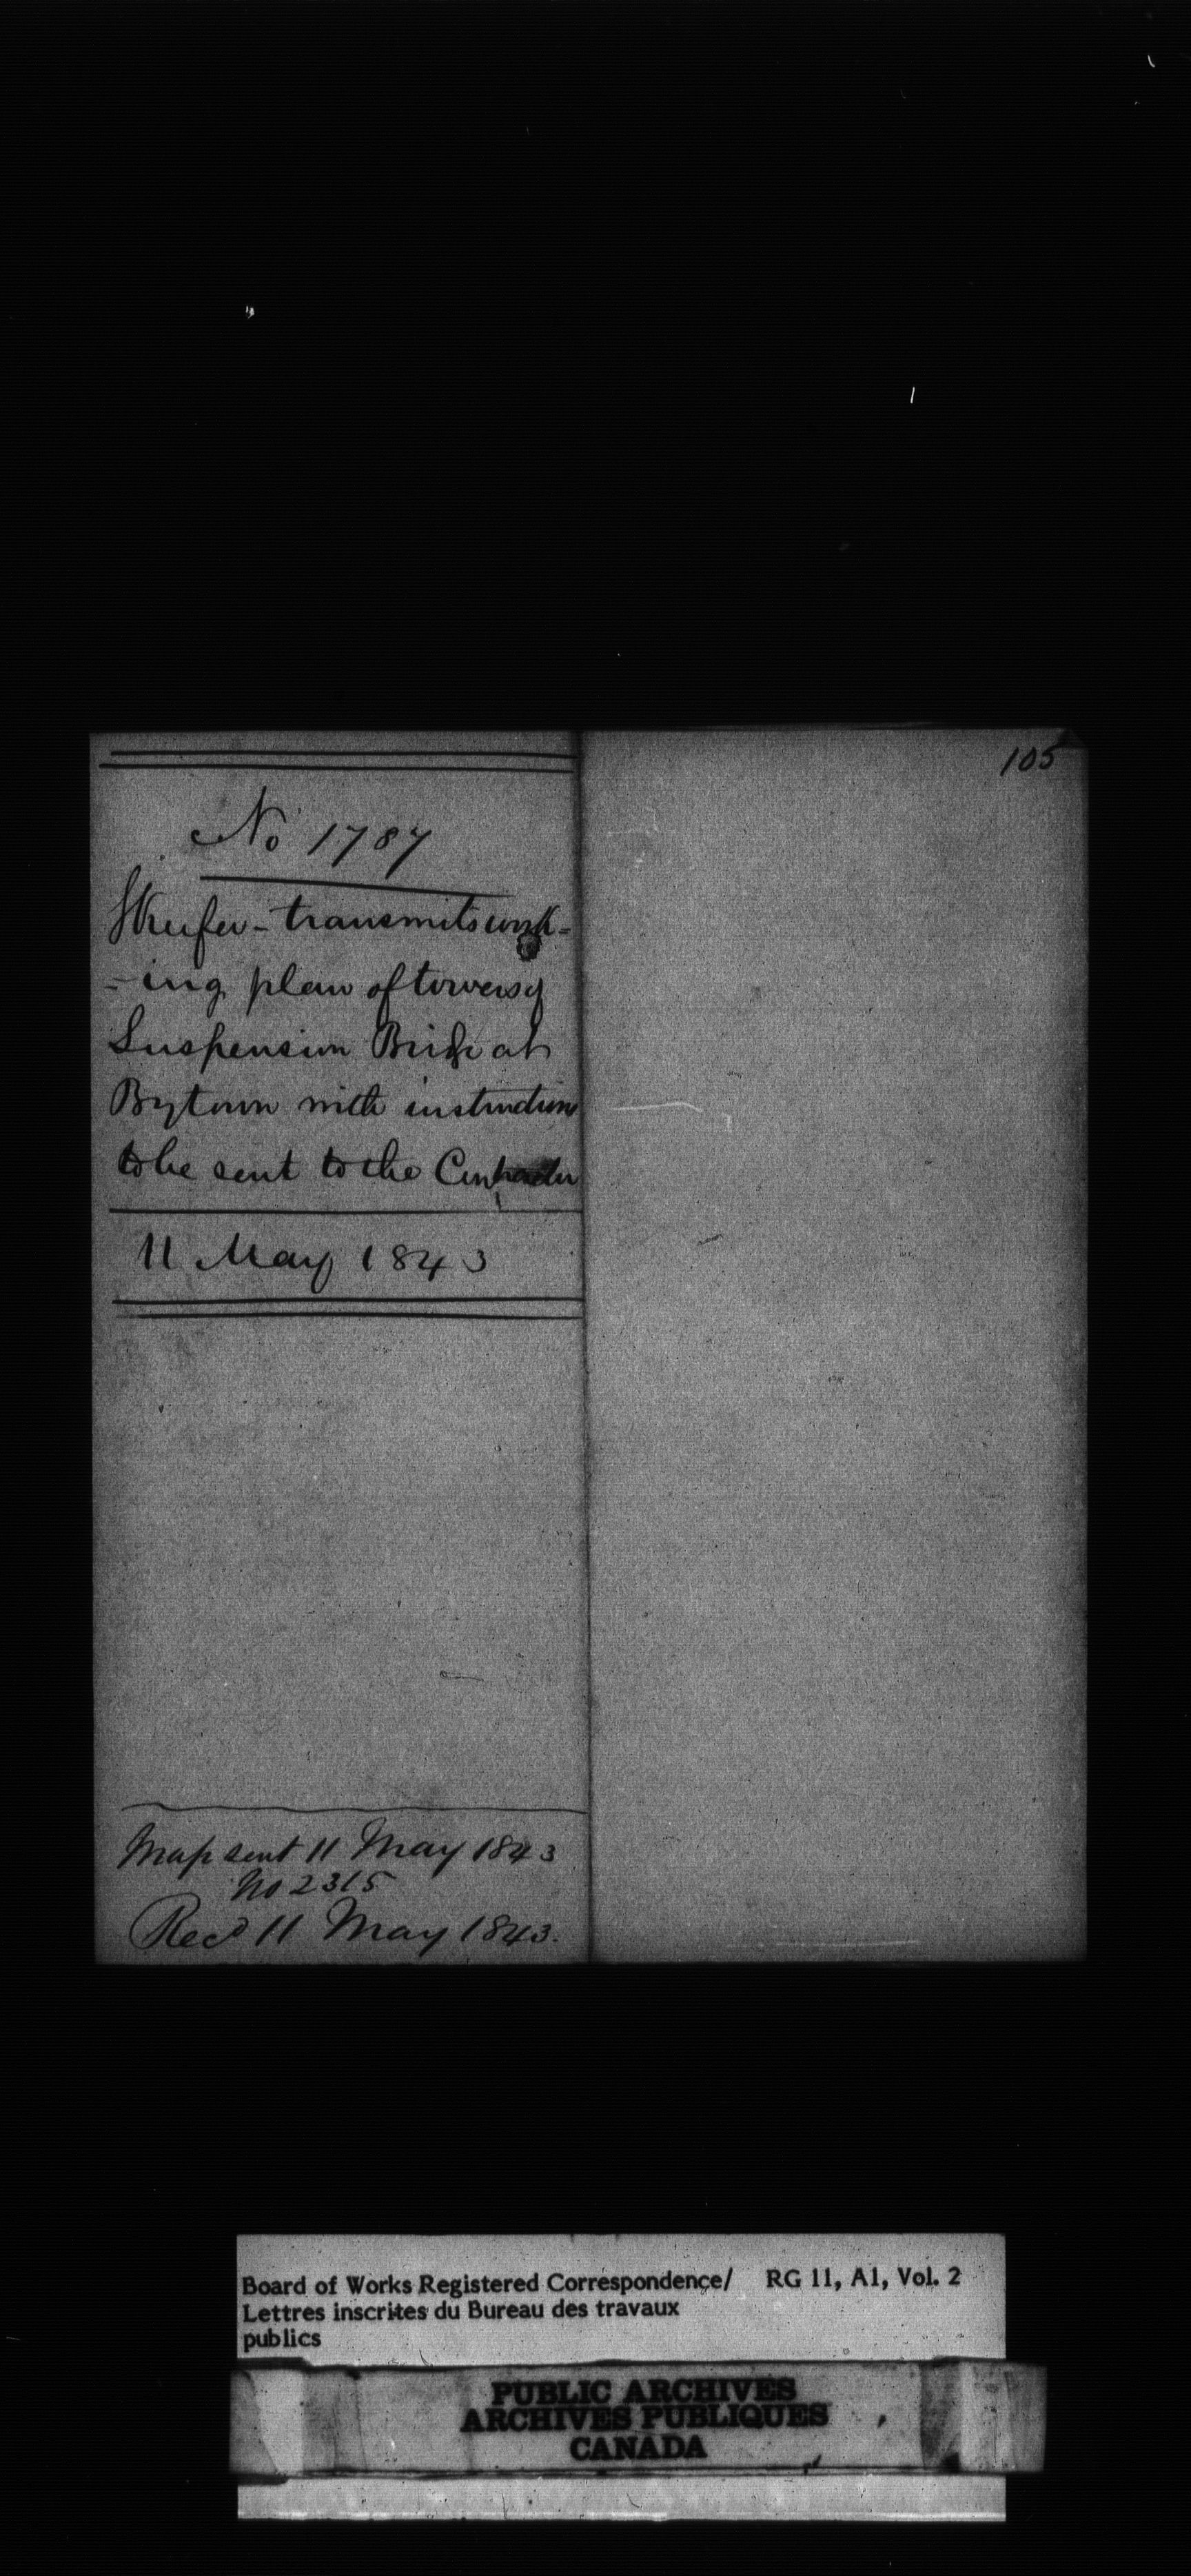 105
No 1787
SKeefer - transmits work-
-ing plan of towers of
Suspension Bridge at
Bytown with instructions
to be sent to the Contractor
11 May 1843
Map sent 11 May 1843
No 2315
Recd 11 May 1843.
Board of Works Registered Correspondence/ RG 11, A1, Vol. 2
Lettres inscrites du Bureau des travaux
publics
PUBLIC ARCHIVES
ARCHIVES PUBLIQUES
CANADA